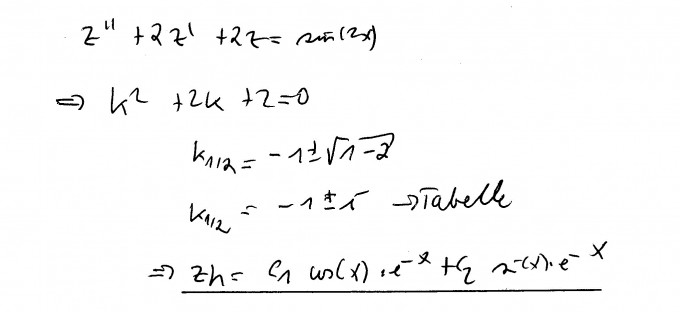 z'' + 2z' + 2z = sin(2x)
⇒ k² + 2k + 2 = 0
k₁/₂ = -1 ± √1-2
k₁/₂ = -1 ± i → Tabelle
⇒ zh = C₁ cos(x) · e⁻ˣ + C₂ sin(x) · e⁻ˣ